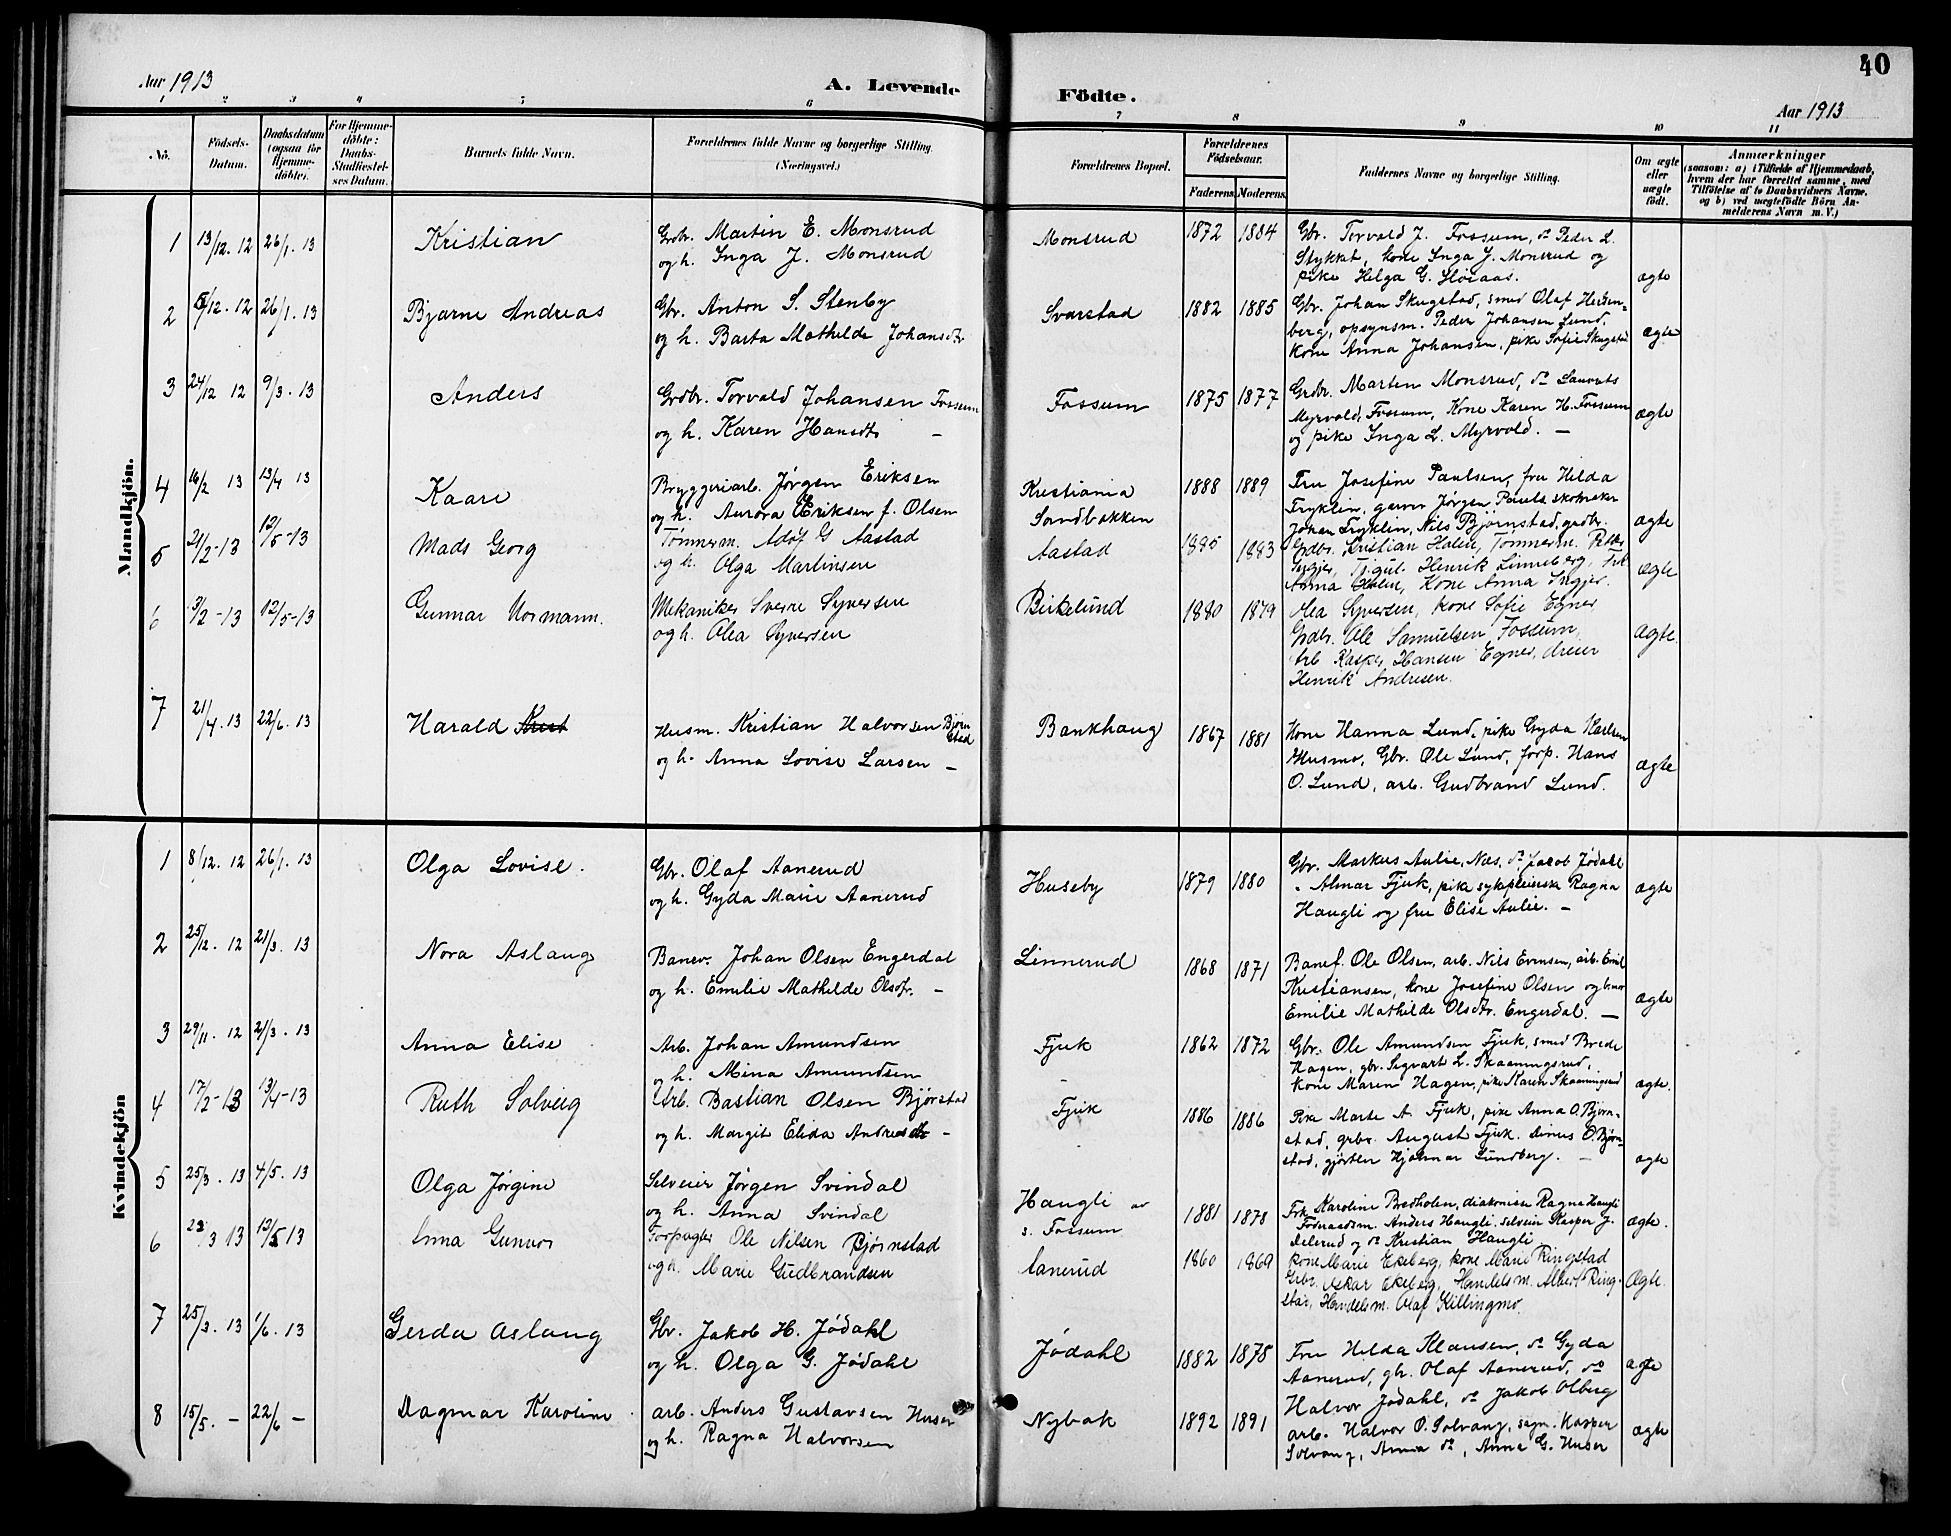 Aar 1913
A. Levende
Födte.
40
Aar 1913
1 2 3 4 5 6 7 8 9 10 11
No.
Födsels-
Datum.
Daabsdatum
(ogsaa for
Hjemme-
döbte).
For Hjemme-
döbte:
Daabs-
Stadfæstel-
ses Datum.
Barnets fulde Navn.
Forældrenes fulde Navne og borgerlige Stilling.
(Næringsvei.)
Forældrenes Bopæl.
Forældrenes
Födselsaar.
Faderens
Moderens
Faddernes Navne og borgerlige Stilling.
Om ægte
eller
uægte
født.
Anmærkninger
(saasom: a) i Tilfælde af Hjemmedaab,
hvem der har forrettet samme, med
Tilföielse af to Daabsvidners Navne.
og b) ved uægtefödte Börn An-
melderens Navn m. V.)
Mandkjön.
1 13/12. 12 26/1. 13 Kristian
Grdbr. Martin E. Monsrud
og h. Inga J. Monsrud
Monsrud 1872 1884
Gbr. Torvald J. Fossum, do Peder L.
Stykket, kone Inga J. Monsrud og
pike Helga G. Høiaas.
ægte
2 5/12. 12 26/1. 13 Bjarne Andreas
Gbr. Anton S. Stenby
og h. Barta Mathilde Johansdtr.
Svarstad 1882 1885
Gbr. Johan Skugstad, smed Olaf
berg, opsynsm. Peder Johansen Lund,
kone Anna Johansen, pike Sofie Skugstad
ægte
3 24/12 12 9/3. 13 Anders
Grdbr. Torvald Johansen Fossum
og h. Karen Hansdtr —
Fossum 1875 1877
Grdbr. Marten Monsrud, do Laurits
Myrvold, Fossum, Kone Karen H. Fossum
og pike Inga L. Myrvold. —
ægte
4 16/2 13 13/4 13 Kaare
Bryggeriarb. Jørgen Eriksen
og h. Aurora Eriksen f. Olsen
Kristiania
Sandbakken
1888 1889
Fru Josefine Paulsen, fru Hilda
Fryklin, garver Jørgen Paulsen skomaker
Johan Fryklin, Nils Bjørnstad, grdbr.
ægte
5 21/2-13 12/5-13 Mads Georg
Tømmerm. Adolf G Aastad
og h. Olga Martinsen
Aastad 1885 1883
Grdbr. Kristian Holen, Tømmerm. Petter
Ingjer, Tj.gut. Henrik Linneberg, Frk
Anna Holen, Kone Anna Ingjer.
ægte
6 3/2-13 12/5-13 Gunnar Normann.
Mekaniker Sverre Syversen
og h. Olea Syversen
Birkelund 1880 1879
Olea Syversen, kone Sofie Egner
Grdbr. Ole Samuelsen Fossum
Arb Kasper Hansen Egner, dreier
Henrik Andresen.
ægte.
7 21/4. 13 22/6. 13 Harald
Husm. Kristian Halvorsen Bjørn
stad
og h. Anna Lovise Larsen —
Bankhaug 1867 1881
Kone Hanna Lund, pike Gyda Karlsen
Husmo, Gbr. Ole Lund, forp. Hans
O. Lund, arb. Gudbrand Lund.
ægte
Kvindekjön
1 8/12. 12 26/1. 13 Olga Lovise.
Gbr. Olaf Aanerud
og h. Gyda Marie Aanerud
Huseby 1879 1880
Gbr. Markus Aulie, Næs, do Jacob Jödahl
" Almar Fjuk, pike sykepleierske Ragna
Haugli og fru Elise Aulie. —
ægte
2 25/12. 12 21/3. 13 Nora Aslaug
Banev. Johan Olsen Engerdal
og h. Emilie Mathilde Olsdtr. —
Linnerud 1868 1871
Banef. Ole Olsen, arb. Nils Evensen, arb. Emil
Kristiansen, kone Josefine Olsen og
Emilie Mathilde Olsdtr. Engerdal. —
ægte
3 29/11. 12 21/3. 13 Anna Elise
Arb. Johan Amundsen
og h. Mina Amundsen
Fjuk
–
1862 1872
Gbr. Ole Amundsen Fjuk, smed Brede
Hagen, gbr. Sigvart L. Skaaningsrud,
kone Maren Hagen, pike Karen Skaaningsrud
ægte.
4 17/2-13 13/4-13 Ruth Solveig
Arb. Bastian Olsen Bjørstad
og h. Margit Elida Andresdtr. –
Fjuk
–
1886 1886
Pike Marte A. Fjuk, pike Anna O. Bjørn-
stad, grbr. August Fjuk. Dinus O. Bjørn-
stad, gjørtler Hjalmar Lundberg. —
ægte
5 25/3. 13 4/5. 13 Olga Jørgine
Selveier Jørgen Svindal
og h. Anna Svindal
Haugli av
s. Fossum
1881 1878
Frk Karoline Bredholen, diakonisse Ragna Haugli
Föderaadsm. Anders Haugli. selveier Kasper J.
Delerud og do Kristian Haugli
ægte.
6 23/3 13 12/5 13 Anna Gunvor
Forpagter Ole Nilsen Bjørnstad
og h. Marie Gudbrandsen
Aanerud 1860 1869
Kone Marie Ekeberg, kone Marie Ringstad
Grbr. Oskar Ekeberg, Handelsm. Albert Ring-
stad, Handelsm. Olaf Killingmo.
Ægte.
7 25/3. 13 1/6. 13 Gerda Aslaug
Gbr. Jakob H. Jödahl
og h. Olga G. Jödahl
Jødahl 1882 1878
Fru Hilda Klausen, do Gyda
Aanerud, gbr. Olaf Aanerud, do
Halvor Jødahl, do Jakob Olberg
ægte
8 15/5. — 22/6 — Dagmar Karoline
arb. Anders Gustavsen Huser
og h. Ragna Halvorsen
Nybak 1892 1891
arb. Halvor O. Solvang, sagm. Kasper
Solvang, Anna do, Anna G. Huser
ægte